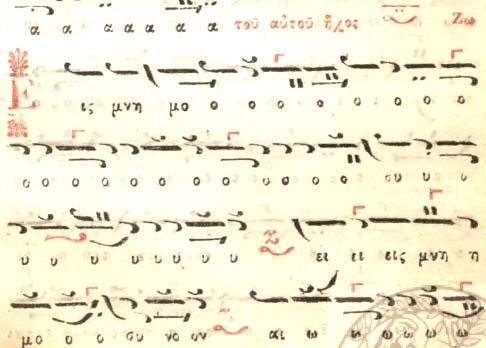 α α α α α α α τοῦ αὐτοῦ ἦχος Ζω
Ε ις μνη μο ο ο ο ο ο ο ο ο ο
ο ο ο ο ο ο ο ο ο ο ο ο ο υ υ υ
υ υ υ υ υ υ υ υ ει ει εις μνη η
μο ο ο συ νο ον αι ω ω ω ω ω